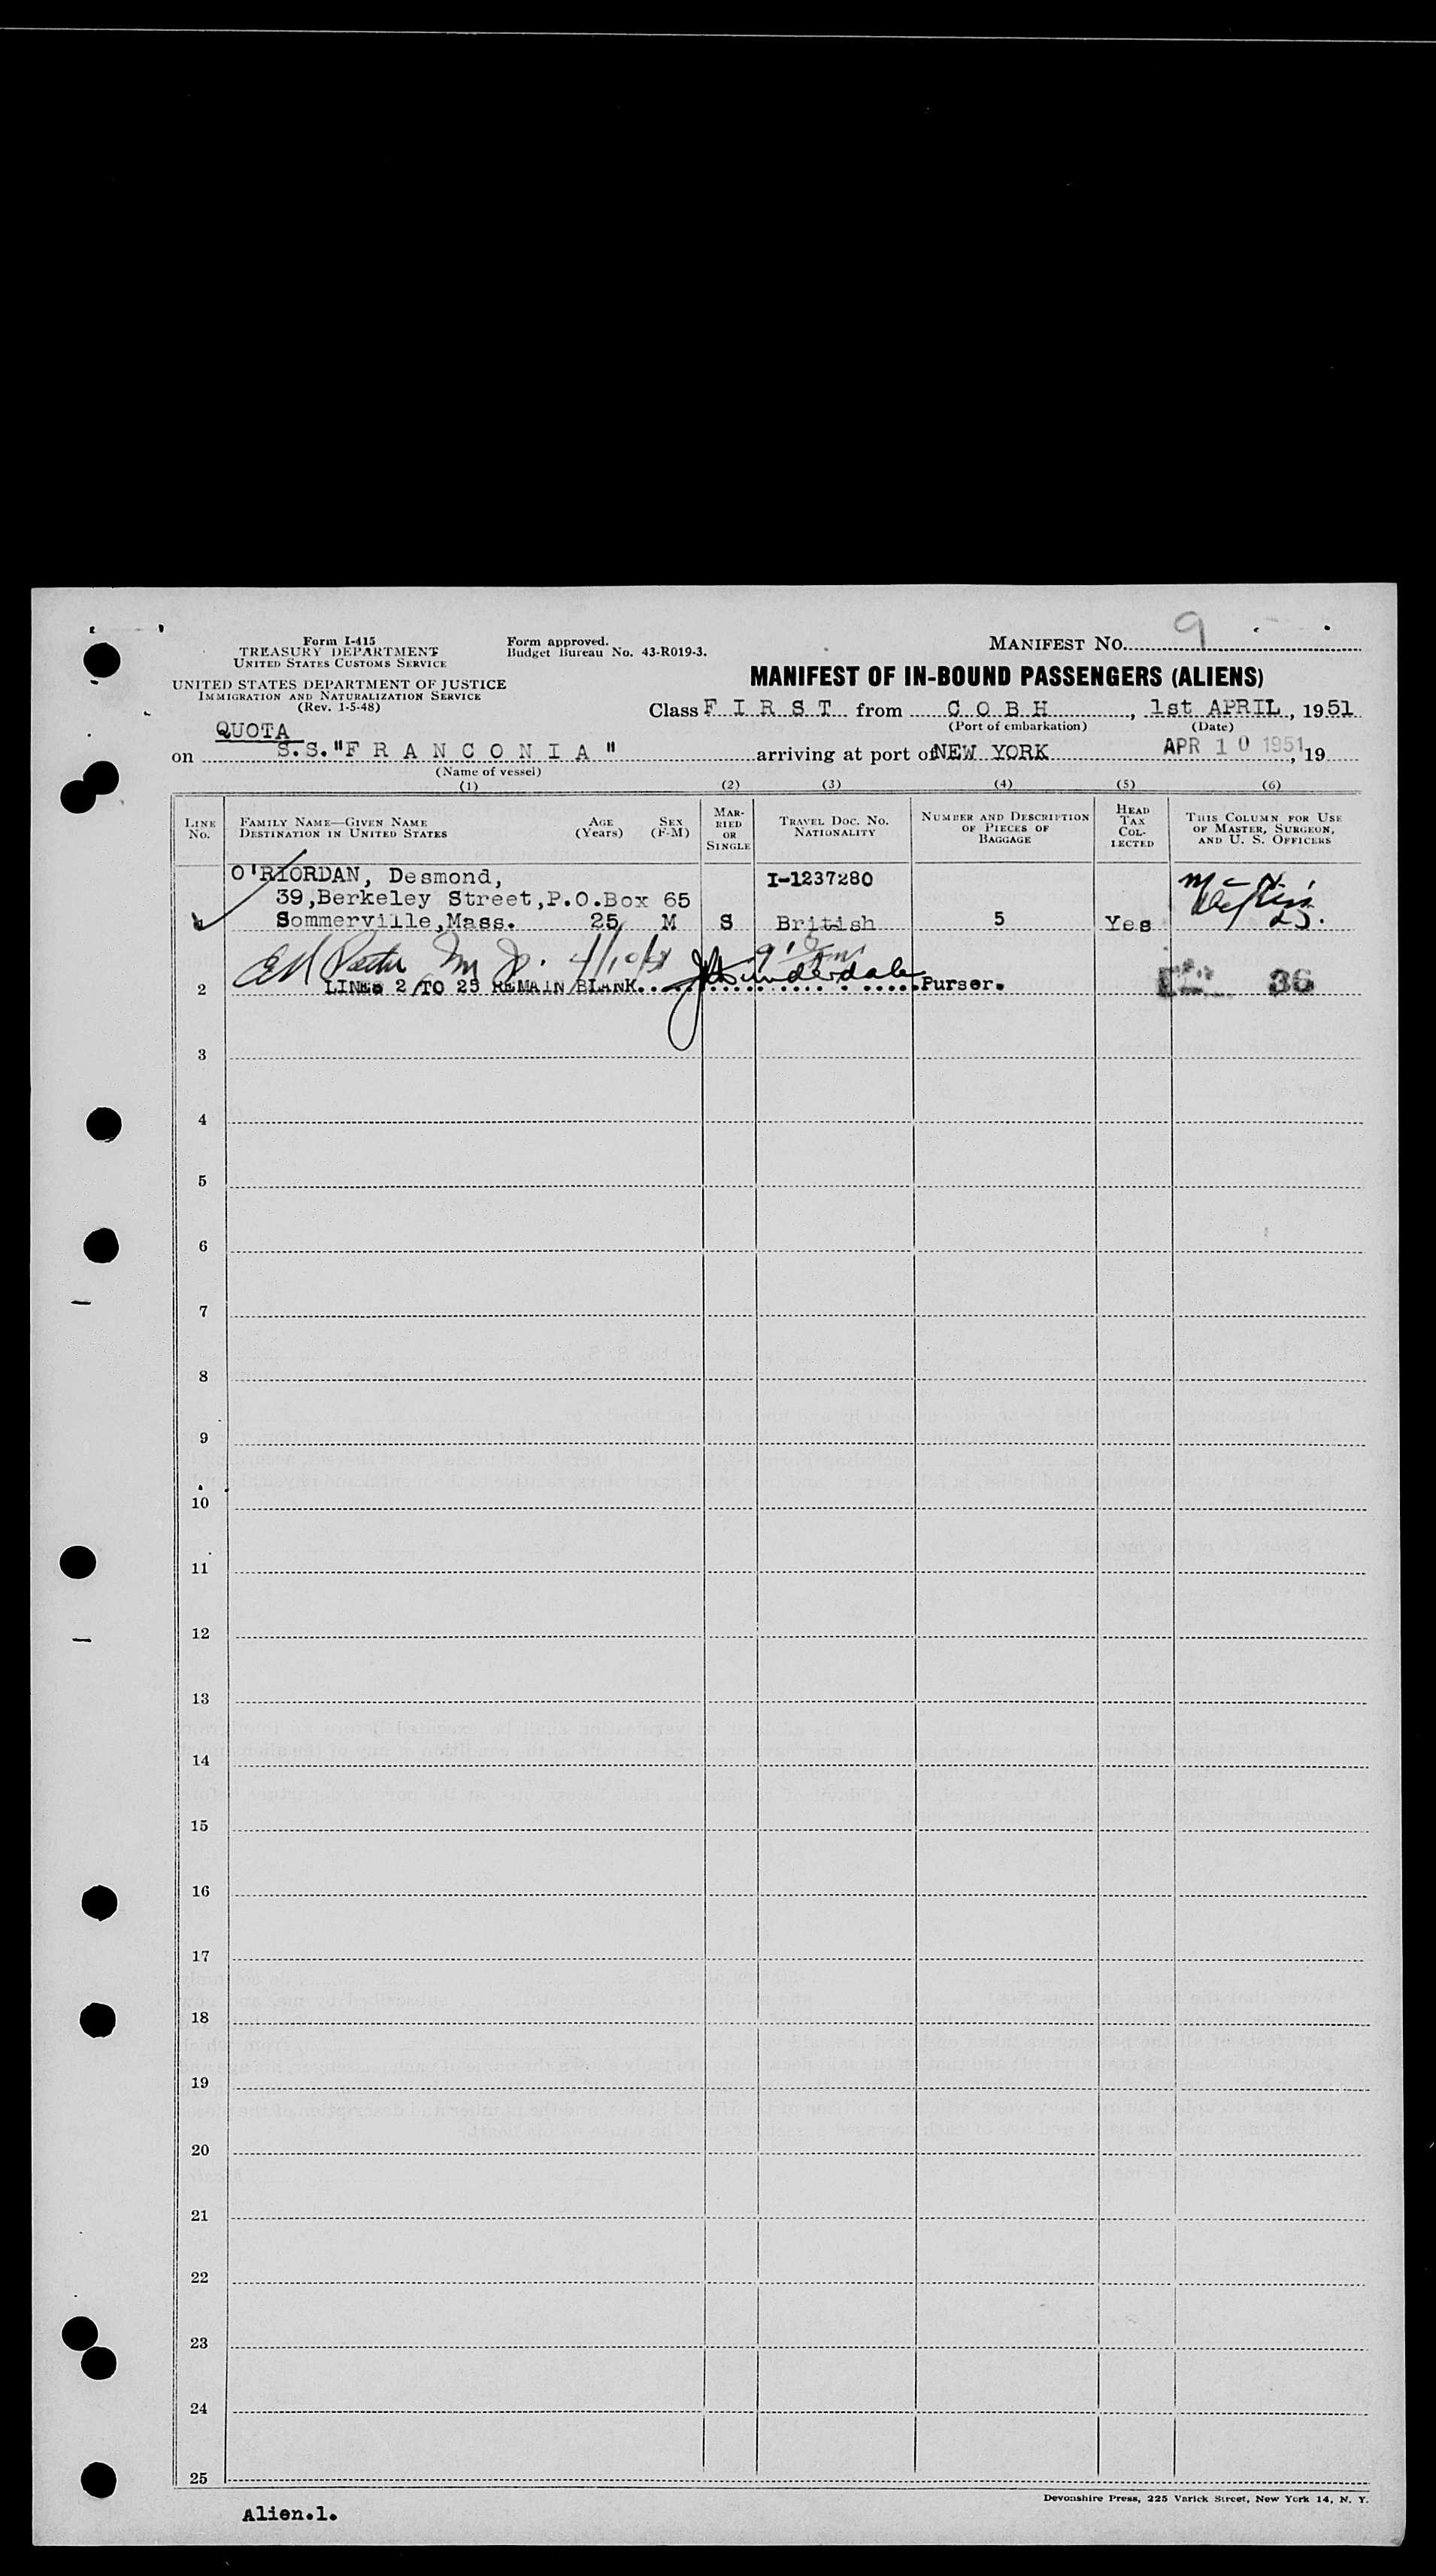 Form I-415
TREASURY DEPARTMENT
UNITED STATES CUSTOMS SERVICE
UNITED STATES DEPARTMENT OF JUSTICE
IMMIGRATION AND NATURALIZATION SERVICE
(Rev. 1-5-48)
Form approved.
Budget Bureau No. 43-R019-3.
MANIFEST No. 9
MANIFEST OF IN-BOUND PASSENGERS (ALIENS)
Class F I R S T from C O B H, 1st APRIL, 1951
(Port of embarkation) (Date)
QUOTA
on S.S."F R A N C O N I A" arriving at port of NEW YORK APR 10 1951, 19
(Name of vessel)
(1) (2) (3) (4) (5) (6)
LINE No.
FAMILY NAME—GIVEN NAME
DESTINATION IN UNITED STATES
AGE (Years)
SEX (F-M)
MARRIED OR SINGLE
TRAVEL DOC. NO.
NATIONALITY
NUMBER AND DESCRIPTION OF PIECES OF BAGGAGE
HEAD TAX COLLECTED
THIS COLUMN FOR USE OF MASTER, SURGEON, AND U. S. OFFICERS
O'RIORDAN, Desmond, I-1237280
39,Berkeley Street,P.O.Box 65
Sommerville,Mass. 25 M S British 5 Yes
4/10/51
2 LINES 2 TO 25 REMAIN BLANK. Purser. 36
3
4
5
6
7
8
9
10
11
12
13
14
15
16
17
18
19
20
21
22
23
24
25
Devonshire Press, 225 Varick Street, New York 14, N. Y.
Alien.1.